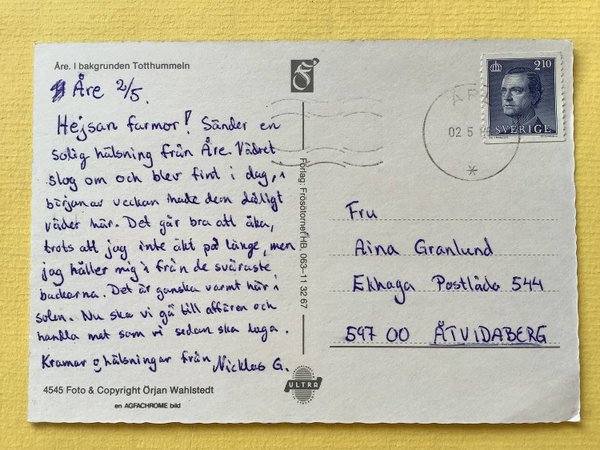 Åre. I bakgrunden Totthummeln
Åre 2/5.
Hejsan farmor! Sänder en
solig hälsning från Åre. Vädret
slog om och blev fint i dag, i
början av veckan hade dem dåligt
väder här. Det går bra att åka,
trots att jag inte åkt på länge, men
jag håller mig ifrån de svåraste
backarna. Det är ganska varmt här i
solen. Nu ska vi gå till affären och
handla mat som vi sedan ska laga.
Kramar o hälsningar från Nicklas G.
4545 Foto & Copyright Örjan Wahlstedt
en AGFACHROME bild
Förlag: Frösötornet HB. 063-11 32 67
ULTRA
2.10
SVERIGE
02 5
Fru
Aina Granlund
Ekhaga Postlåda 544
597 00 ÅTVIDABERG